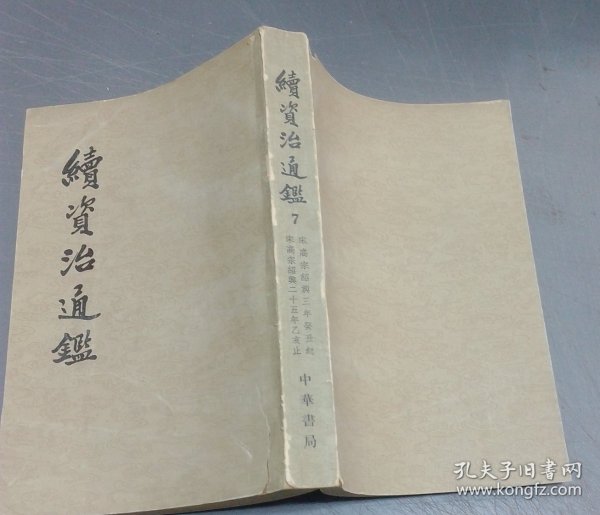 續資治通鑑
續資治通鑑
7
宋高宗紹興三年癸丑起
宋高宗紹興二十五年乙亥止
中華書局
孔夫子旧书网
www.kongfz.com